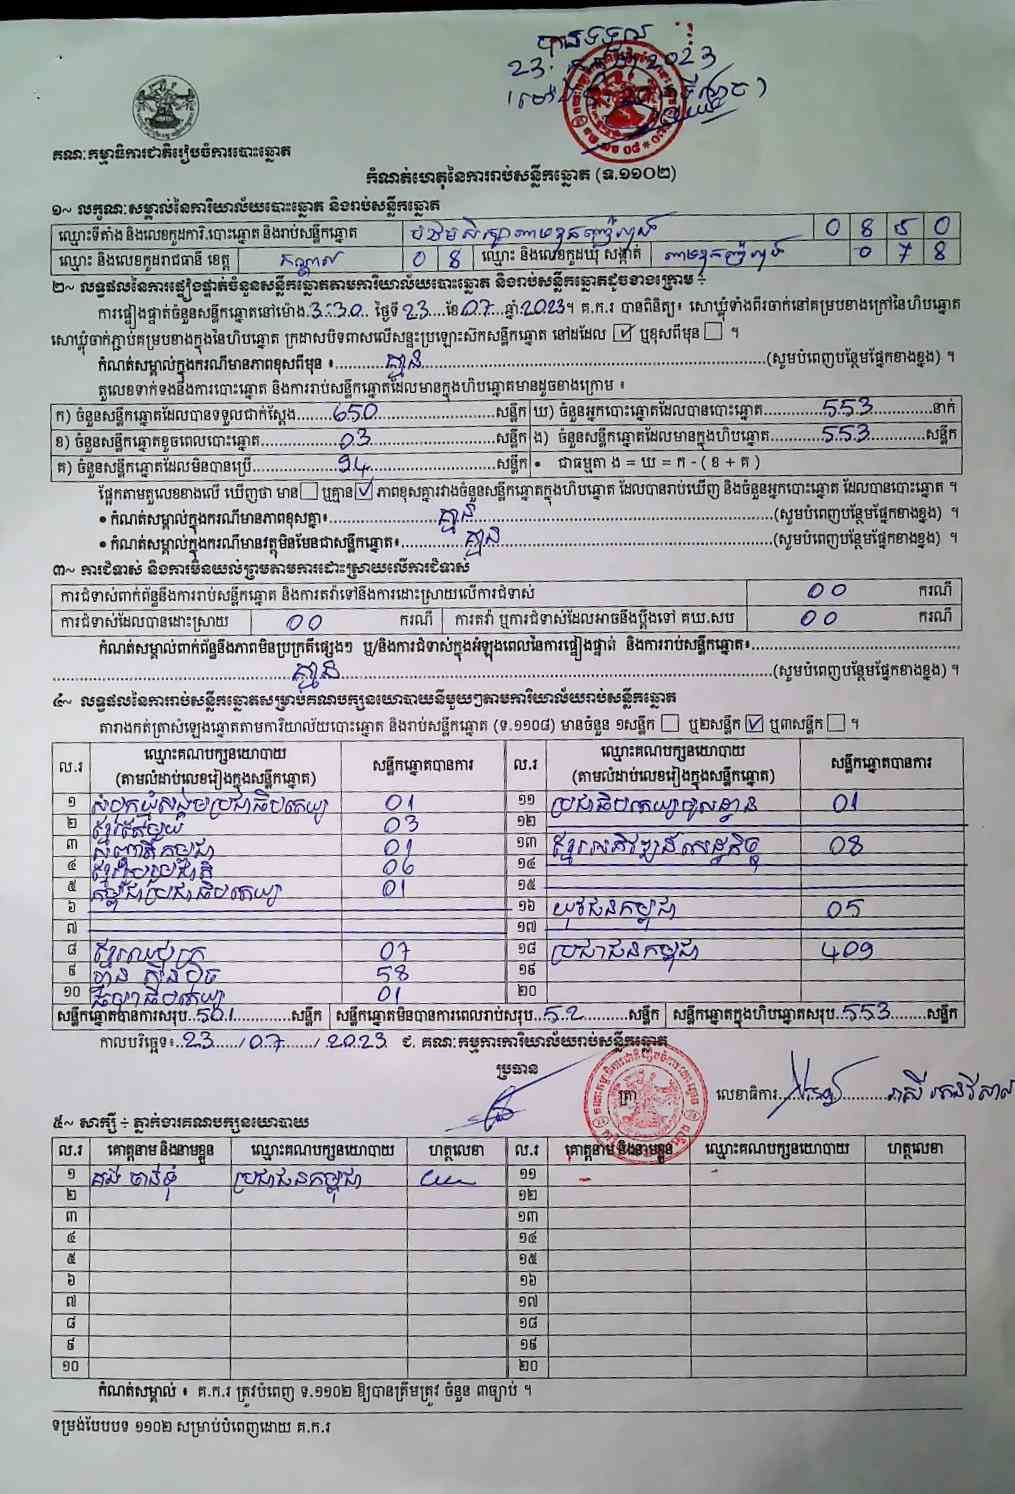 បានទទួល
23
2023
គណៈកម្មាធិការជាតិរៀបចំការបោះឆ្នោត
កំណត់ហេតុនៃការរាប់សន្លឹកឆ្នោត (ទ.១១០២)
១~ លក្ខណៈសម្គាល់នៃការិយាល័យបោះឆ្នោត និងរាប់សន្លឹកឆ្នោត
ឈ្មោះទីតាំង និងលេខកូដការិ.បោះឆ្នោត និងរាប់សន្លឹកឆ្នោត 0 8 5 0
ឈ្មោះ និងលេខកូដរាជធានី ខេត្ត កណ្តាល 0 8 ឈ្មោះ និងលេខកូដឃុំ សង្កាត់ 0 7 8
២~ លទ្ធផលនៃការផ្ទៀងផ្ទាត់ចំនួនសន្លឹកឆ្នោតតាមការិយាល័យបោះឆ្នោត និងរាប់សន្លឹកឆ្នោតដូចខាងក្រោម ÷
ការផ្ទៀងផ្ទាត់ចំនួនសន្លឹកឆ្នោតនៅម៉ោង 3:30 ថ្ងៃទី 23 ខែ 07 ឆ្នាំ 2023។ គ.ក.រ បានពិនិត្យ៖ សោឃ្លុំទាំងពីរចាក់នៅគម្របខាងក្រៅនៃហិបឆ្នោត
សោឃ្លុំចាក់ភ្ជាប់គម្របខាងក្នុងនៃហិបឆ្នោត ក្រដាសបិទពាសលើសន្ទះប្រឡោះសិកសន្លឹកឆ្នោត នៅដដែល ☑ ឬខុសពីមុន ☐ ។
កំណត់សម្គាល់ក្នុងករណីមានភាពខុសពីមុន ៖ គ្មាន (សូមបំពេញបន្ថែមផ្នែកខាងខ្នង) ។
តួលេខទាក់ទងនឹងការបោះឆ្នោត និងការរាប់សន្លឹកឆ្នោតដែលមានក្នុងហិបឆ្នោតមានដូចខាងក្រោម ៖
ក) ចំនួនសន្លឹកឆ្នោតដែលបានទទួលជាក់ស្តែង 650 សន្លឹក ឃ) ចំនួនអ្នកបោះឆ្នោតដែលបានបោះឆ្នោត 553 នាក់
ខ) ចំនួនសន្លឹកឆ្នោតខូចពេលបោះឆ្នោត 03 សន្លឹក ង) ចំនួនសន្លឹកឆ្នោតដែលមានក្នុងហិបឆ្នោត 553 សន្លឹក
គ) ចំនួនសន្លឹកឆ្នោតដែលមិនបានប្រើ 94 សន្លឹក • ជាធម្មតា ង = ឃ = ក - ( ខ + គ )
ផ្អែកតាមតួលេខខាងលើ ឃើញថា មាន ☐ ឬគ្មាន ☑ ភាពខុសគ្នារវាងចំនួនសន្លឹកឆ្នោតក្នុងហិបឆ្នោត ដែលបានរាប់ឃើញ និងចំនួនអ្នកបោះឆ្នោត ដែលបានបោះឆ្នោត ។
• កំណត់សម្គាល់ក្នុងករណីមានភាពខុសគ្នា៖ គ្មាន (សូមបំពេញបន្ថែមផ្នែកខាងខ្នង) ។
• កំណត់សម្គាល់ក្នុងករណីមានវត្ថុមិនមែនជាសន្លឹកឆ្នោត៖ គ្មាន (សូមបំពេញបន្ថែមផ្នែកខាងខ្នង) ។
៣~ ការជំទាស់ និងការមិនយល់ព្រមតាមការដោះស្រាយលើការជំទាស់
ការជំទាស់ពាក់ព័ន្ធនឹងការរាប់សន្លឹកឆ្នោត និងការតវ៉ាទៅនឹងការដោះស្រាយលើការជំទាស់ 00 ករណី
ការជំទាស់ដែលបានដោះស្រាយ 00 ករណី ការតវ៉ា ឬការជំទាស់ដែលអាចនឹងប្តឹងទៅ គឃ.សប 00 ករណី
កំណត់សម្គាល់ពាក់ព័ន្ធនឹងភាពមិនប្រក្រតីផ្សេងៗ ឬ/និងការជំទាស់ក្នុងអំឡុងពេលនៃការផ្ទៀងផ្ទាត់ និងការរាប់សន្លឹកឆ្នោត៖
គ្មាន (សូមបំពេញបន្ថែមផ្នែកខាងខ្នង) ។
៤~ លទ្ធផលនៃការរាប់សន្លឹកឆ្នោតសម្រាប់គណបក្សនយោបាយនីមួយៗតាមការិយាល័យរាប់សន្លឹកឆ្នោត
តារាងកត់ត្រាសំឡេងឆ្នោតតាមការិយាល័យបោះឆ្នោត និងរាប់សន្លឹកឆ្នោត (ទ.១១០៨) មានចំនួន ១សន្លឹក ☐ ឬ២សន្លឹក ☑ ឬ៣សន្លឹក ☐ ។
ល.រ ឈ្មោះគណបក្សនយោបាយ (តាមលំដាប់លេខរៀងក្នុងសន្លឹកឆ្នោត) សន្លឹកឆ្នោតបានការ ល.រ ឈ្មោះគណបក្សនយោបាយ (តាមលំដាប់លេខរៀងក្នុងសន្លឹកឆ្នោត) សន្លឹកឆ្នោតបានការ
១ សំបុកឃ្មុំសង្គមប្រជាធិបតេយ្យ 01 ១១ ប្រជាធិបតេយ្យមូលដ្ឋាន 01
២ ខ្មែរតែមួយ 03 ១២
៣ សញ្ជាតិកម្ពុជា 01 ១៣ ខ្មែរអភិវឌ្ឍន៍សេដ្ឋកិច្ច 08
៤ ខ្មែររួបរួមជាតិ 06 ១៤
៥ កម្ពុជាប្រជាធិបតេយ្យ 01 ១៥
៦ ១៦ យុវជនកម្ពុជា 05
៧ ១៧
៨ ខ្មែរឈប់ក្រ 07 ១៨ ប្រជាជនកម្ពុជា 409
៩ ហ៊្វុនស៊ិនប៉ិច 58 ១៩
១០ ធិបតេយ្យ 01 ២០
សន្លឹកឆ្នោតបានការសរុប 501 សន្លឹក សន្លឹកឆ្នោតមិនបានការពេលរាប់សរុប 52 សន្លឹក សន្លឹកឆ្នោតក្នុងហិបឆ្នោតសរុប 553 សន្លឹក
កាលបរិច្ឆេទ៖ 23 / 07 / 2023 ជ. គណៈកម្មការការិយាល័យរាប់សន្លឹកឆ្នោត
ប្រធាន
ត្រា
លេខាធិការ
៥~ សាក្សី ÷ ភ្នាក់ងារគណបក្សនយោបាយ
ល.រ គោត្តនាម និងនាមខ្លួន ឈ្មោះគណបក្សនយោបាយ ហត្ថលេខា ល.រ គោត្តនាម និងនាមខ្លួន ឈ្មោះគណបក្សនយោបាយ ហត្ថលេខា
១ ប្រជាជនកម្ពុជា ១១
២ ១២
៣ ១៣
៤ ១៤
៥ ១៥
៦ ១៦
៧ ១៧
៨ ១៨
៩ ១៩
១០ ២០
កំណត់សម្គាល់ ៖ គ.ក.រ ត្រូវបំពេញ ទ.១១០២ ឱ្យបានត្រឹមត្រូវ ចំនួន ៣ច្បាប់ ។
ទម្រង់បែបបទ ១១០២ សម្រាប់បំពេញដោយ គ.ក.រ